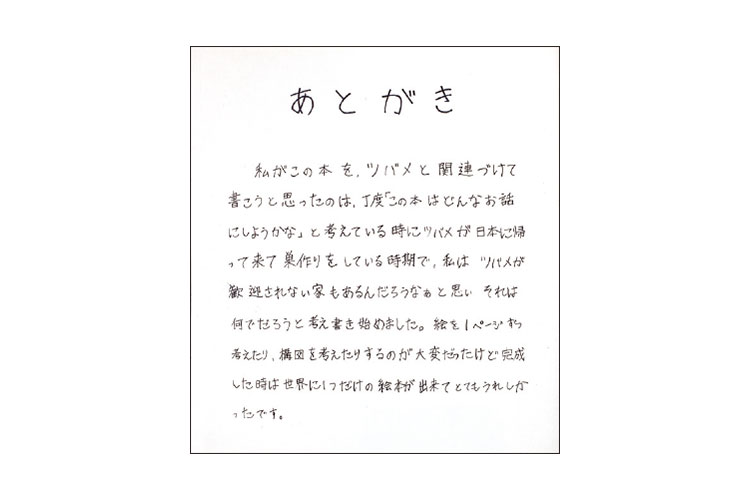 あとがき
私がこの本を、ツバメと関連づけて
書こうと思ったのは、丁度「この本はどんなお話
にしようかな」と考えている時にツバメが日本に帰
って来て巣作りをしている時期で、私は ツバメが
歓迎されない家もあるんだろうなぁと思い それは
何でだろうと考え書き始めました。絵を1ページずつ
考えたり、構図を考えたりするのが大変だったけど完成
した時は世界に1つだけの絵本が出来てとてもうれしか
ったです。